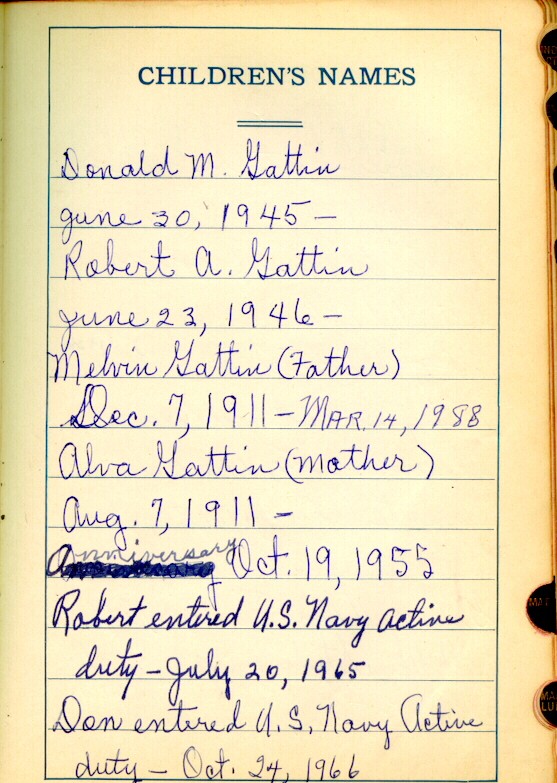 CHILDREN'S NAMES
Donald M. Gattin
June 30, 1945 –
Robert A. Gattin
June 23, 1946 –
Melvin Gattin (Father)
Dec. 7, 1911 – MAR. 14, 1988
Alva Gattin (Mother)
Aug. 7, 1911 –
Anniversary Oct. 19, 1955
Robert entered U.S. Navy active
duty – July 20, 1965
Don entered U.S. Navy Active
duty – Oct. 24, 1966